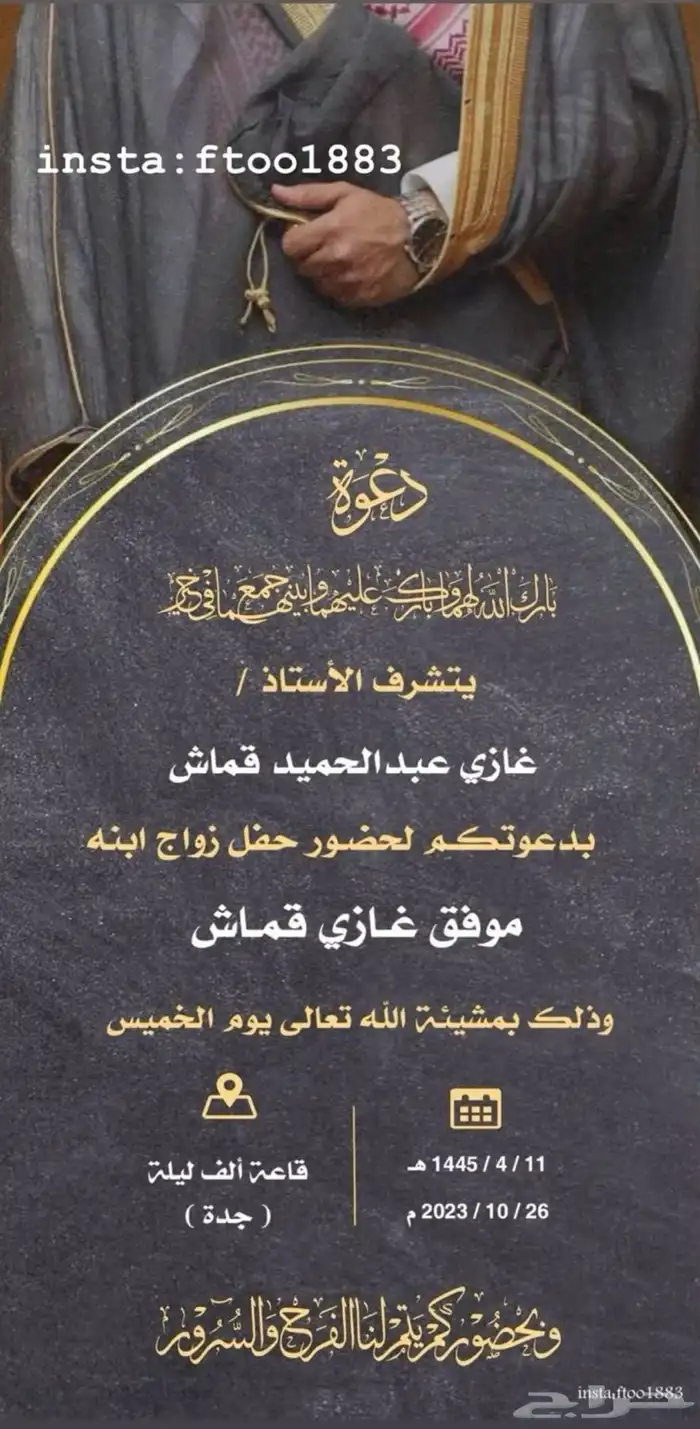 insta:ftoo1883
دعوة
بارك الله لهما وبارك عليهما وجمع بينهما في خير
يتشرف الأستاذ /
غازي عبدالحميد قماش
بدعوتكم لحضور حفل زواج ابنه
موفق غازي قماش
وذلك بمشيئة الله تعالى يوم الخميس
11 / 4 / 1445 هـ
26 / 10 / 2023 م
قاعة ألف ليلة
( جدة )
وبحضوركم يتم لنا الفرح والسرور
insta:ftoo1883
حراج